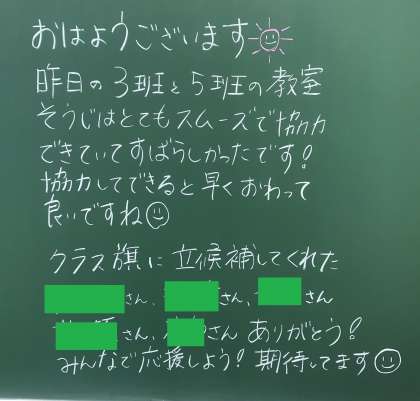 おはようございます
昨日の3班と5班の教室
そうじはとてもスムーズで協力
できていてすばらしかったです!
協力してできると早くおわって
良いですね
クラス旗に立候補してくれた
さん、さん、さん
さん、さんありがとう!
みんなで応援しよう!期待してます